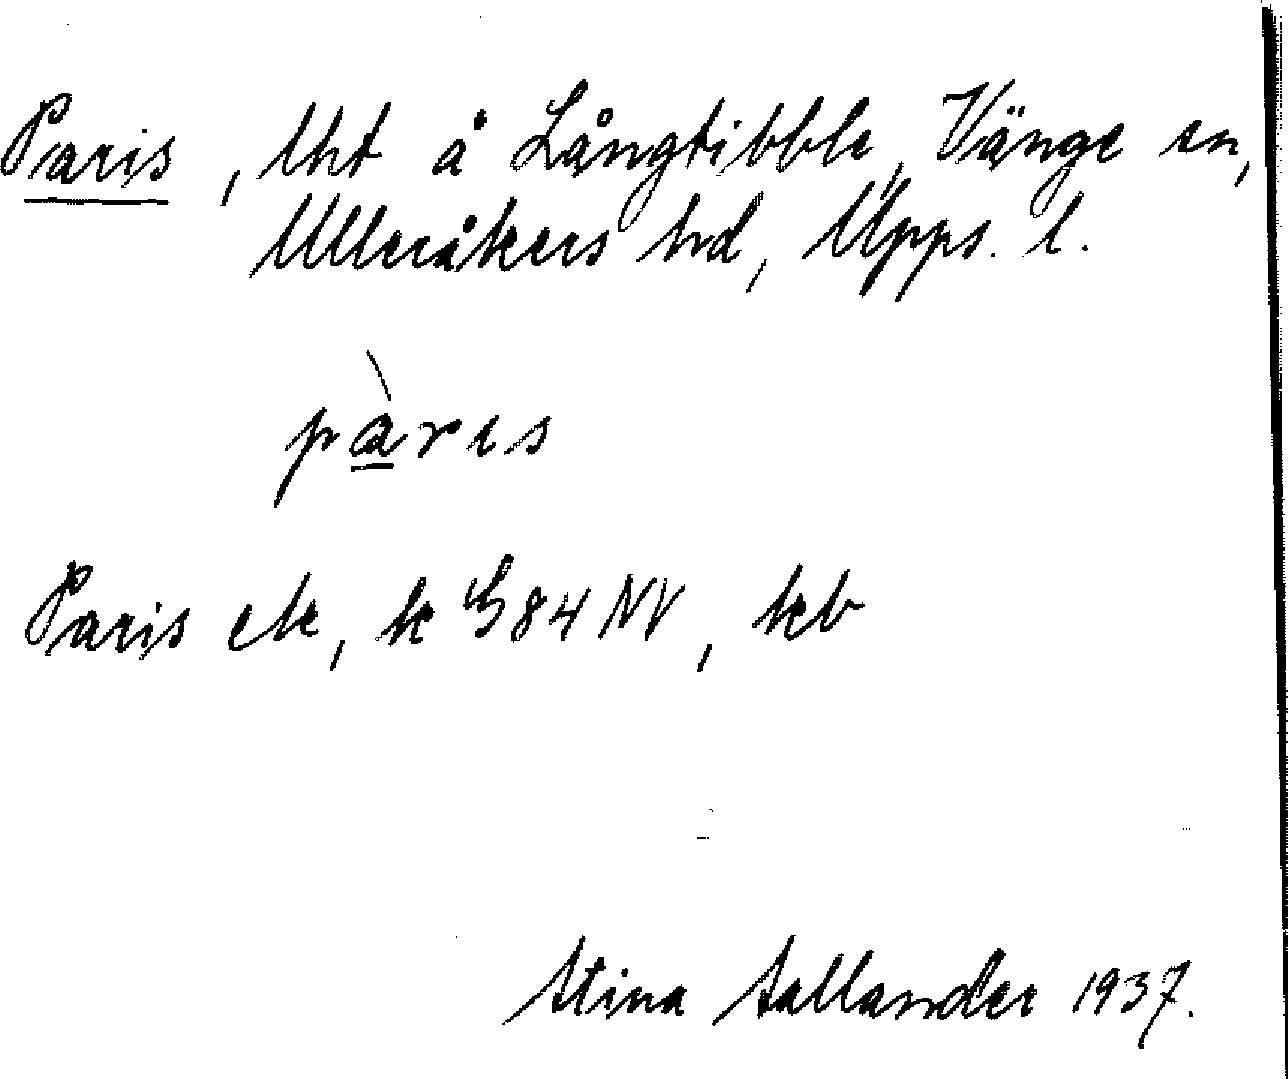 Paris, lht å Långtibble, Vänge sn,
Ulleråkers hd, Upps. l.
pàris
Paris ek, k G 84 NV, kb
Stina Sallander 1937.